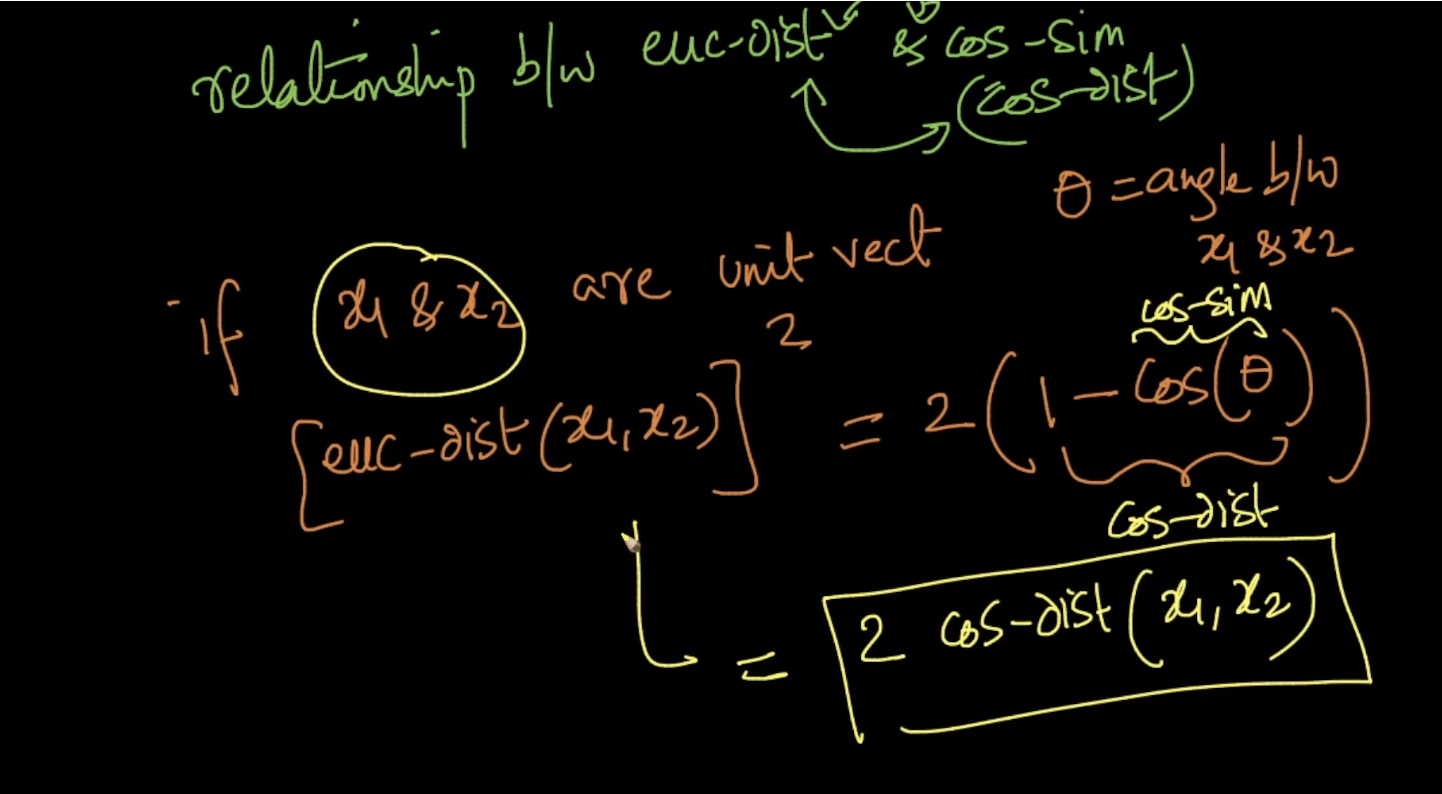 relationship b/w euc-dist & cos-sim
(cos-dist)
θ = angle b/w
x₁ & x₂
if x₁ & x₂ are unit vect
cos-sim
[euc-dist(x₁, x₂)]² = 2(1 - Cos(θ))
Cos-dist
= 2 cos-dist(x₁, x₂)